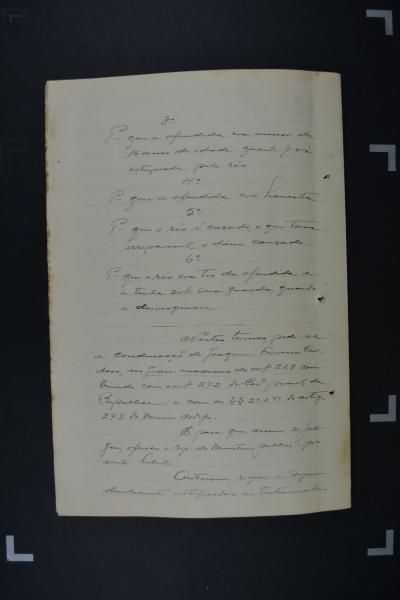 3º
P. que a offendida era menor de
16 annos de idade quando foi
estuprada pelo réo
4º
P. que a offendida era honesta
5º
P. que o réo é casado, o que torna
irreparavel o damno causado.
6º
P. que o réo era tio da offendida e
a tinha sob sua guarda quando
a desvirginou
Nestes termos, pede-se
a condemnação de Joaquim
no grau maximo do art 268 com
binado com o art 272 do Cod. penal da
Republica e com os §§ 2º e 4º do artigo
273 do mesmo codigo.
E para que assim se jul
gue, offerece o Rep. do Ministerio publico o pre
sente libello.
Outrosim, requer se sejam
devidamente notificadas as testemunhas